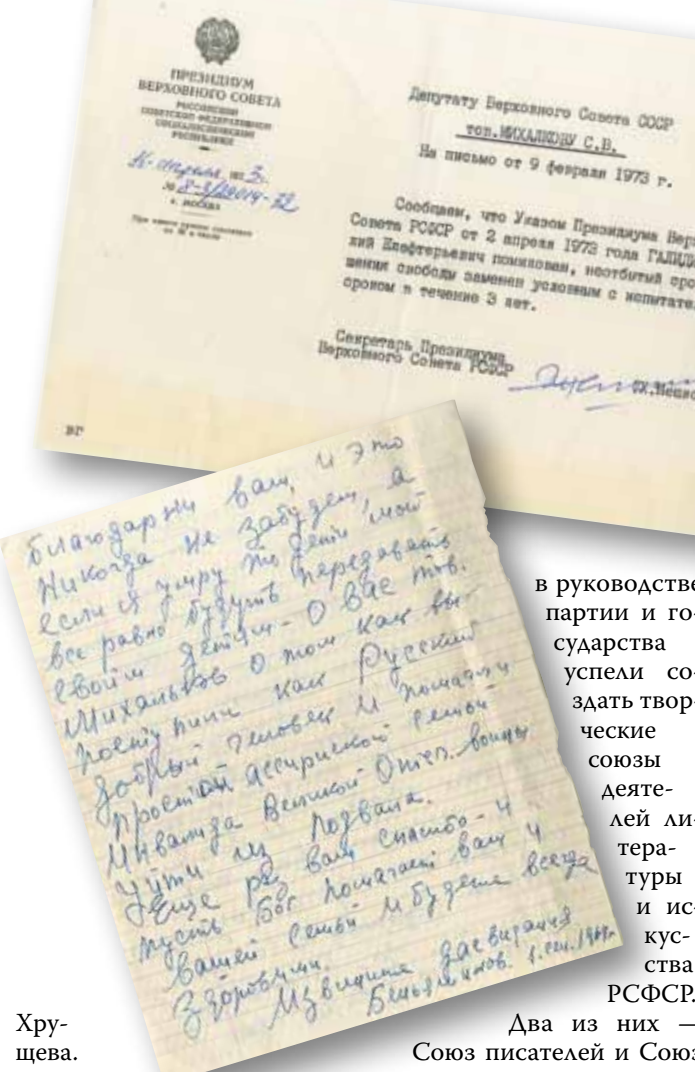 ПРЕЗИДИУМ
ВЕРХОВНОГО СОВЕТА
РОССИЙСКОЙ
СОВЕТСКОЙ ФЕДЕРАТИВНОЙ
СОЦИАЛИСТИЧЕСКОЙ
РЕСПУБЛИКИ
апреля 3
№
г. МОСКВА
Депутату Верховного Совета СССР
тов.МИХАЛКОВУ С.В.
На письмо от 9 февраля 1973 г.
Сообщаем, что Указом Президиума Верх
Совета РСФСР от 2 апреля 1973 года
лий Елефтерьевич помилован, неотбытый сро
шения свободы заменен условным с испытател
сроком в течение 3 лет.
Секретарь Президиума
Верховного Совета РСФСР
ВГ
Благодарны вам, и это
никогда не забудем, а
если я умру то дети мои
все равно будут передавать
своим детям - О вас тов.
Михальков о том как вы
поступили как Русский
добрый человек и помагли
простой ассирийской семьи
Инвалида Великой Отеч. войны
уйти из подвала.
Еще раз вам спасибо - и
пусть Бог помагает вам и
вашей семьи и будете всегда
здоровыми.
Извините досвидания
в руководстве
партии и го-
сударства
успели со-
здать твор-
ческие
союзы
деяте-
лей ли-
тера-
туры
и ис-
кус-
ства
РСФСР.
Хру-
щева.
Два из них —
Союз писателей и Союз